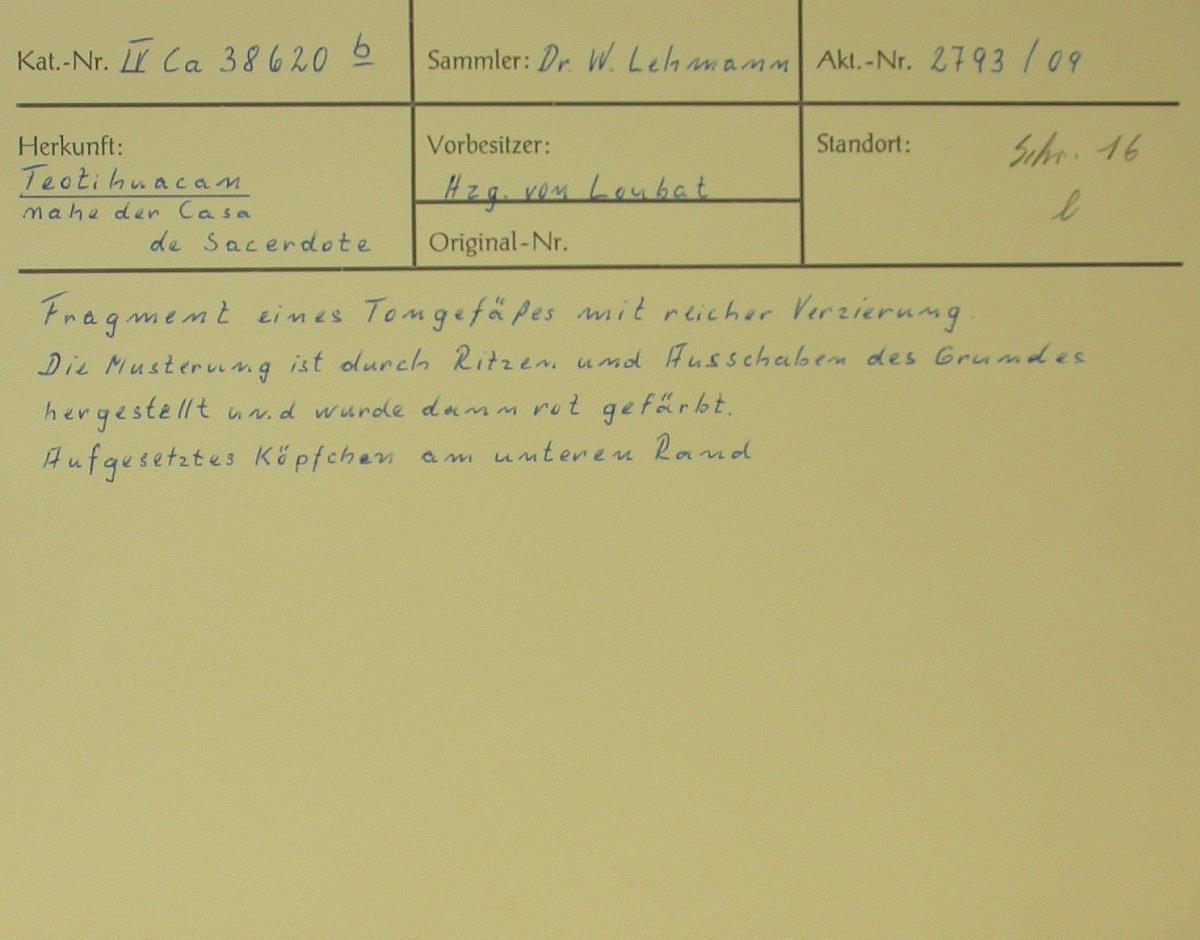 Kat.-Nr. IV Ca 38620 b
Sammler: Dr. W. Lehmann
Akt.-Nr. 2793/09
Herkunft:
Teotihuacan
nahe der Casa
de Sacerdote
Vorbesitzer:
Hzg. von Loubat
Original-Nr.
Standort: Schr. 16
l
Fragment eines Tongefäßes mit reicher Verzierung.
Die Musterung ist durch Ritzen und Ausschaben des Grundes
hergestellt und wurde dann rot gefärbt.
Aufgesetztes Köpfchen am unteren Rand